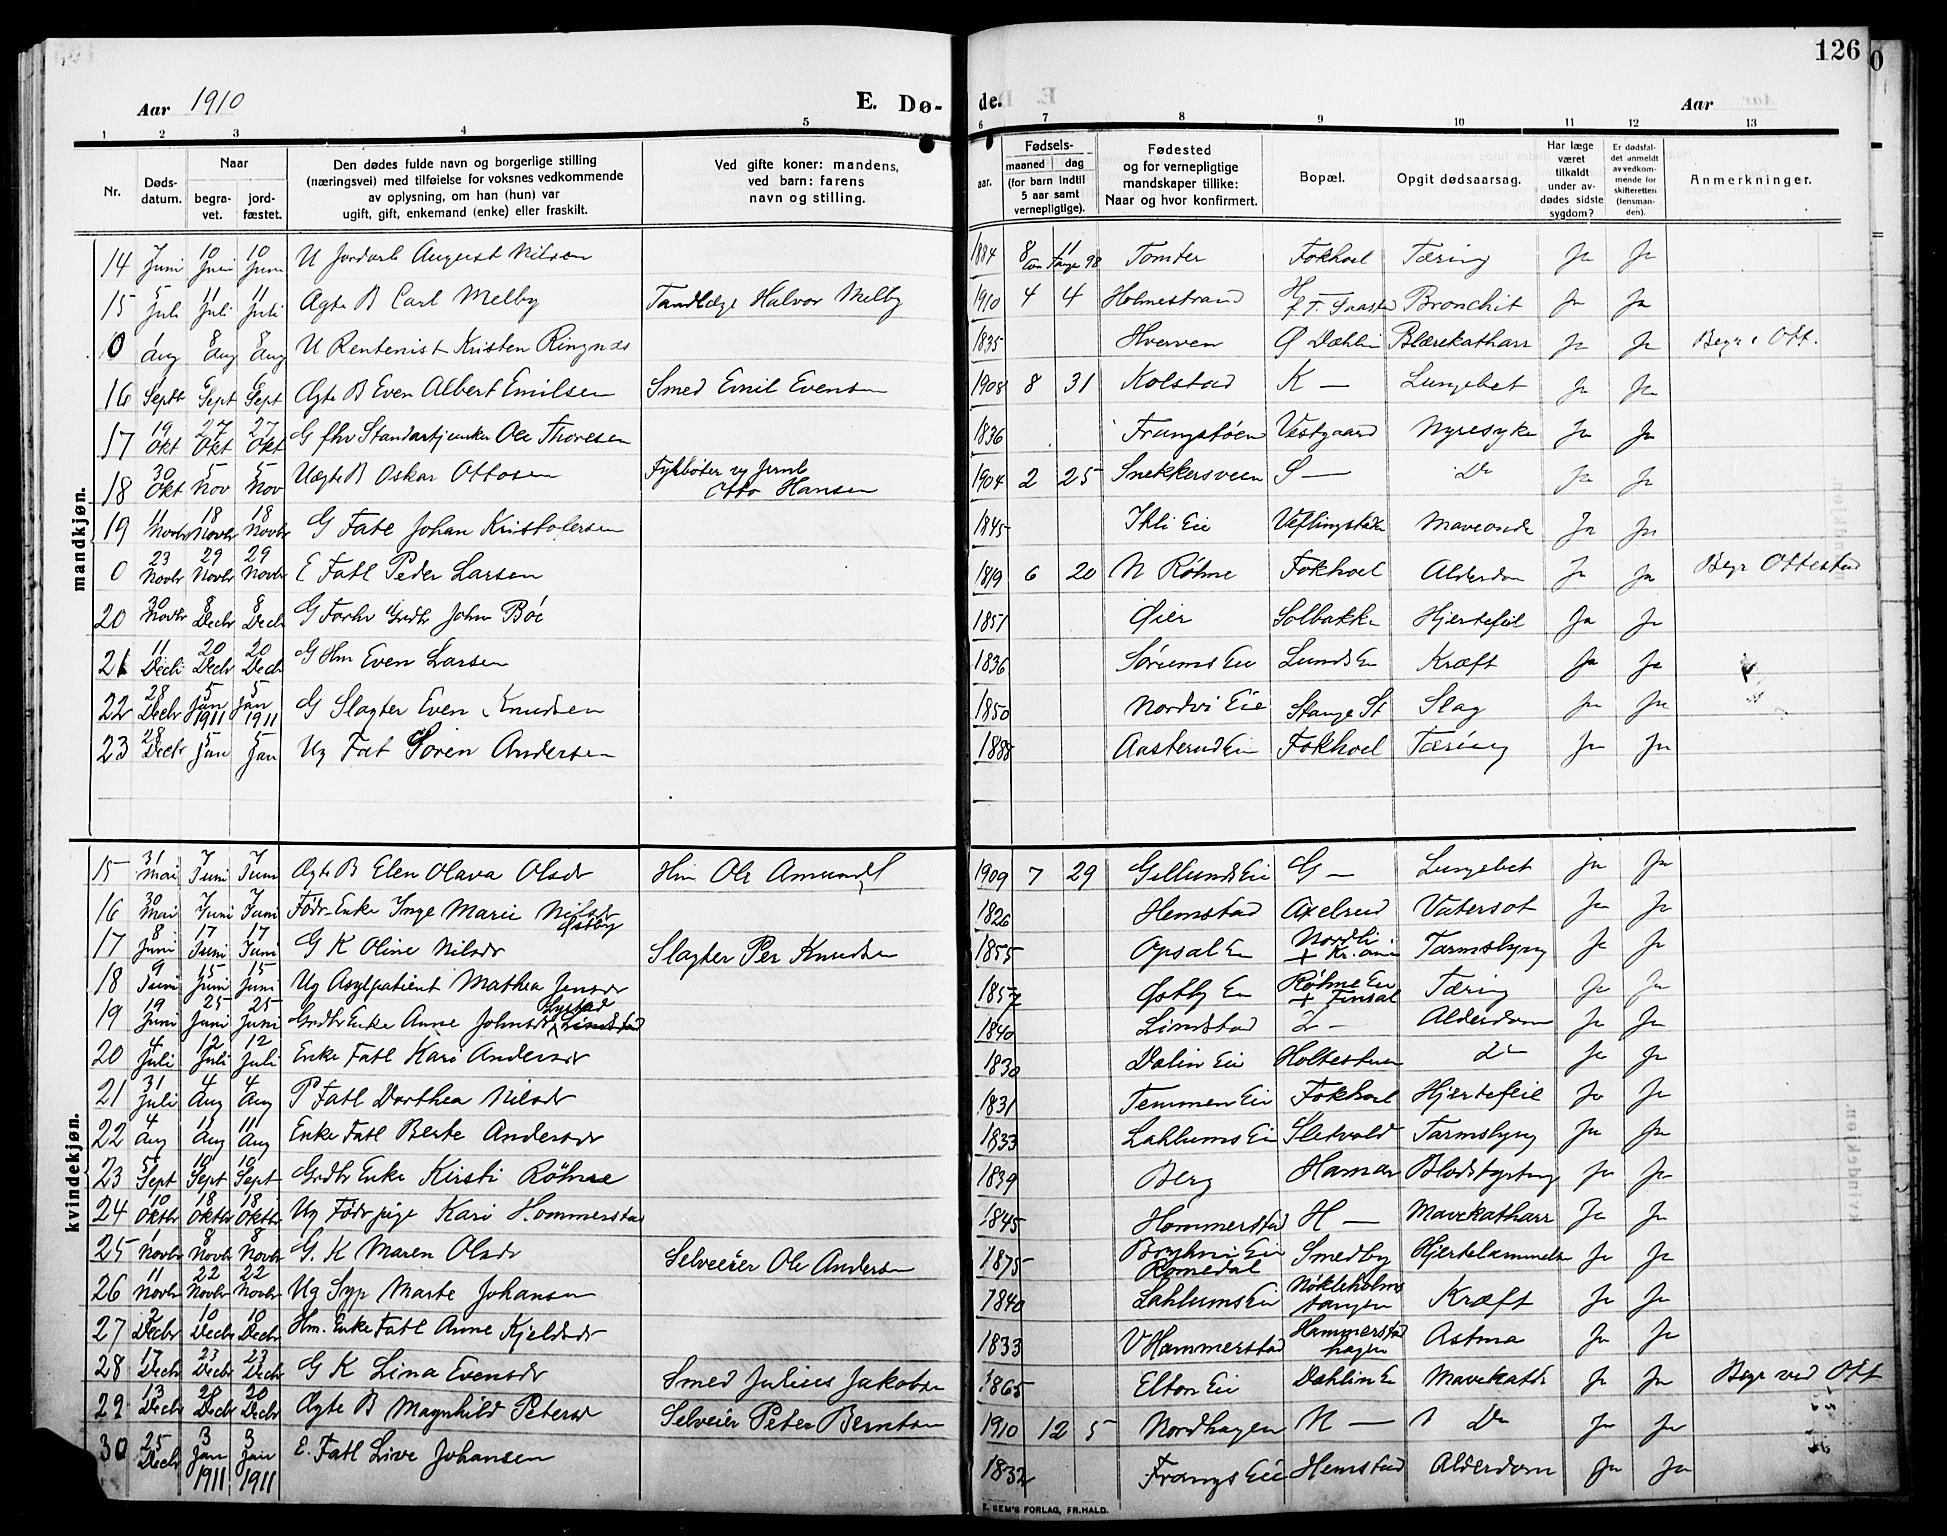 126
Aar 1910 E. Dø- de. Aar
1 2 3 4 5 6 7 8 9 10 11 12 13
Nr. Døds-datum. Naar begra-vet. jord-fæstet. Den dødes fulde navn og borgerlige stilling (næringsvei) med tilføielse for voksnes vedkommende av oplysning, om han (hun) var ugift, gift, enkemand (enke) eller fraskilt. Ved gifte koner: mandens, ved barn: farens navn og stilling. Fødsels- aar. maaned dag (for barn indtil 5 aar samt vernepligtige). Fødested og for vernepligtige mandskaper tillike: Naar og hvor konfirmert. Bopæl. Opgit dødsaarsag. Har læge været tilkaldt under av-dødes sidste sygdom? Er dødsfal-det anmeldt av vedkom-mende for skifteretten (lensman-den). Anmerkninger.
mandkjøn.
14 7 Juni 10 Juni 10 Juni U Jordarb August Nilsen 1884 8 11 Tomter Fokhoel Tæring Ja Ja
15 5 Juli 11 Juli 11 Juli Ægte B Carl Melby Tandlæge Halvor Melby 1910 4 4 Holmestrand Bronchit Ja Ja
0 1 Aug 8 Aug 8 Aug U Rentenist Kristen Ringnæs 1835 Hverven Ø Dæhlin Blærekatharr Ja Ja Begr i Ott.
16 1 Septr 6 Sept 6 Sept Ægte B Even Albert Emilsen Smed Emil Evensen 1908 8 31 Kolstad K — Lungebet Ja Ja
17 19 Okt 27 Okt 27 Okt G fhv Standartjunker Ole Thoresen 1836 Frangstøen Vestgaard Nyresyke Ja Ja
18 30 Okt 5 Nov 5 Nov Uægte B Oskar Ottosen Fyrbøter vg Jernb Otto Hansen 1904 2 25 Snekkersveen S — Do Ja Ja
19 11 Novbr 18 Novbr 18 Novbr G Fatl Johan Kristofersen 1845 Ihli Eie Veflingstaden Maveonde Ja Ja
0 23 Novbr 29 Novbr 29 Novbr E Fatl Peder Larsen 1819 6 20 N Röhne Fokhoel Alderdom Ja Ja Begr Ottestad
20 30 Novbr 8 Decbr 8 Decbr G Forhv Grdbr Johan Böe 1857 Øier Solbakken Hjertefeil Ja Ja
21 11 Decbr 20 Decbr 20 Decbr G Hm Even Larsen 1836 Sørums Eie Lunds Eie Kræft Ja Ja
22 28 Decbr 5 Jan 1911 5 Jan 1911 G Slagter Even Knudsen 1850 Nordvi Eie Stange St Slag Ja Ja
23 28 Decbr 5 Jan 5 Jan Ug Fat Søren Andersen 1888 Aasterud Eie Fokhoel Tæring Ja Ja
kvindekjøn.
15 31 Mai 7 Juni 7 Juni Ægte B Elen Olava Olsdr Hm Ole Amunds 1909 7 29 Gillunds Eie G — Lungebet Ja Ja
16 30 Mai 7 Juni 7 Juni Födr-Enke Inge Marie Nilsdr Østby 1826 Hemstad Axelrud Vatersot Ja Ja
17 8 Juni 17 Juni 17 Juni G K Oline Nilsdr Slagter Per Knudsen 1855 Opsal Eie Nordli + Kr.ania Tarmslyng Ja Ja
18 9 Juni 15 Juni 15 Juni Ug Asylpatient Mathea Jensdr 1857 Østby Eie Röhne Eie + Finsal Tæring Ja Ja
19 19 Juni 25 Juni 25 Juni Grdbr Enke Anne Johnsdr Lindstad 1840 Lindstad L — Alderdom Ja Ja
20 4 Juli 12 Juli 12 Juli Enke Fatl Kari Andersdr 1830 Dælin Eie Holtestuen Do Ja Ja
21 31 Juli 4 Aug 4 Aug P Fatl Dorthea Nilsdr 1831 Temmen Eie Fokhoel Hjertefeil Ja Ja
22 4 Aug 11 Aug 11 Aug Enke Fatl Berte Andersdr 1833 Lahlums Eie Sletvold Tarmslyng Ja Ja
23 5 Sept 10 Sept 10 Sept Grdbr Enke Kirsti Röhne 1839 Berg Hamar Blodstyrtning Ja Ja
24 10 Oktbr 18 Oktbr 18 Oktbr Ug Födr pige Kari Hommerstad 1845 Hommerstad H — Mavekatharr Ja Ja
25 1 Novbr 8 Novbr 8 Novbr G. K Maren Olsdr Selveier Ole Andersen 1875 Bryhni Eie Romedal Smedby Hjertelammelse Ja Ja
26 11 Novbr 22 Novbr 22 Novbr Ug Syp Marte Johansen 1840 Lahlums Eie Nökleholms tangen Kræft Ja Ja
27 2 Decbr 10 Decbr 10 Decbr Hm. Enke Fatl Anne Kjeldsdr 1833 V Hammerstad Hammerstad hagen Astma Ja Ja
28 17 Decbr 23 Decbr 23 Decbr G K Lina Evensdr Smed Julius Jakobsen 1865 Elton Eie Dæhlin E Mavekath Ja Ja Begr ved Ott
29 13 Decbr 20 Decbr 20 Decbr Ægte B Magnhild Petersdr Selveier Peter Berntsen 1910 12 5 Nordhagen N — Do Ja Ja
30 25 Decbr 3 Jan 1911 3 Jan 1911 E. Fatl Live Johansen 1832 Frangs Eie Hemstad Alderdom Ja Ja
E. SEM'S FORLAG, FR.HALD.